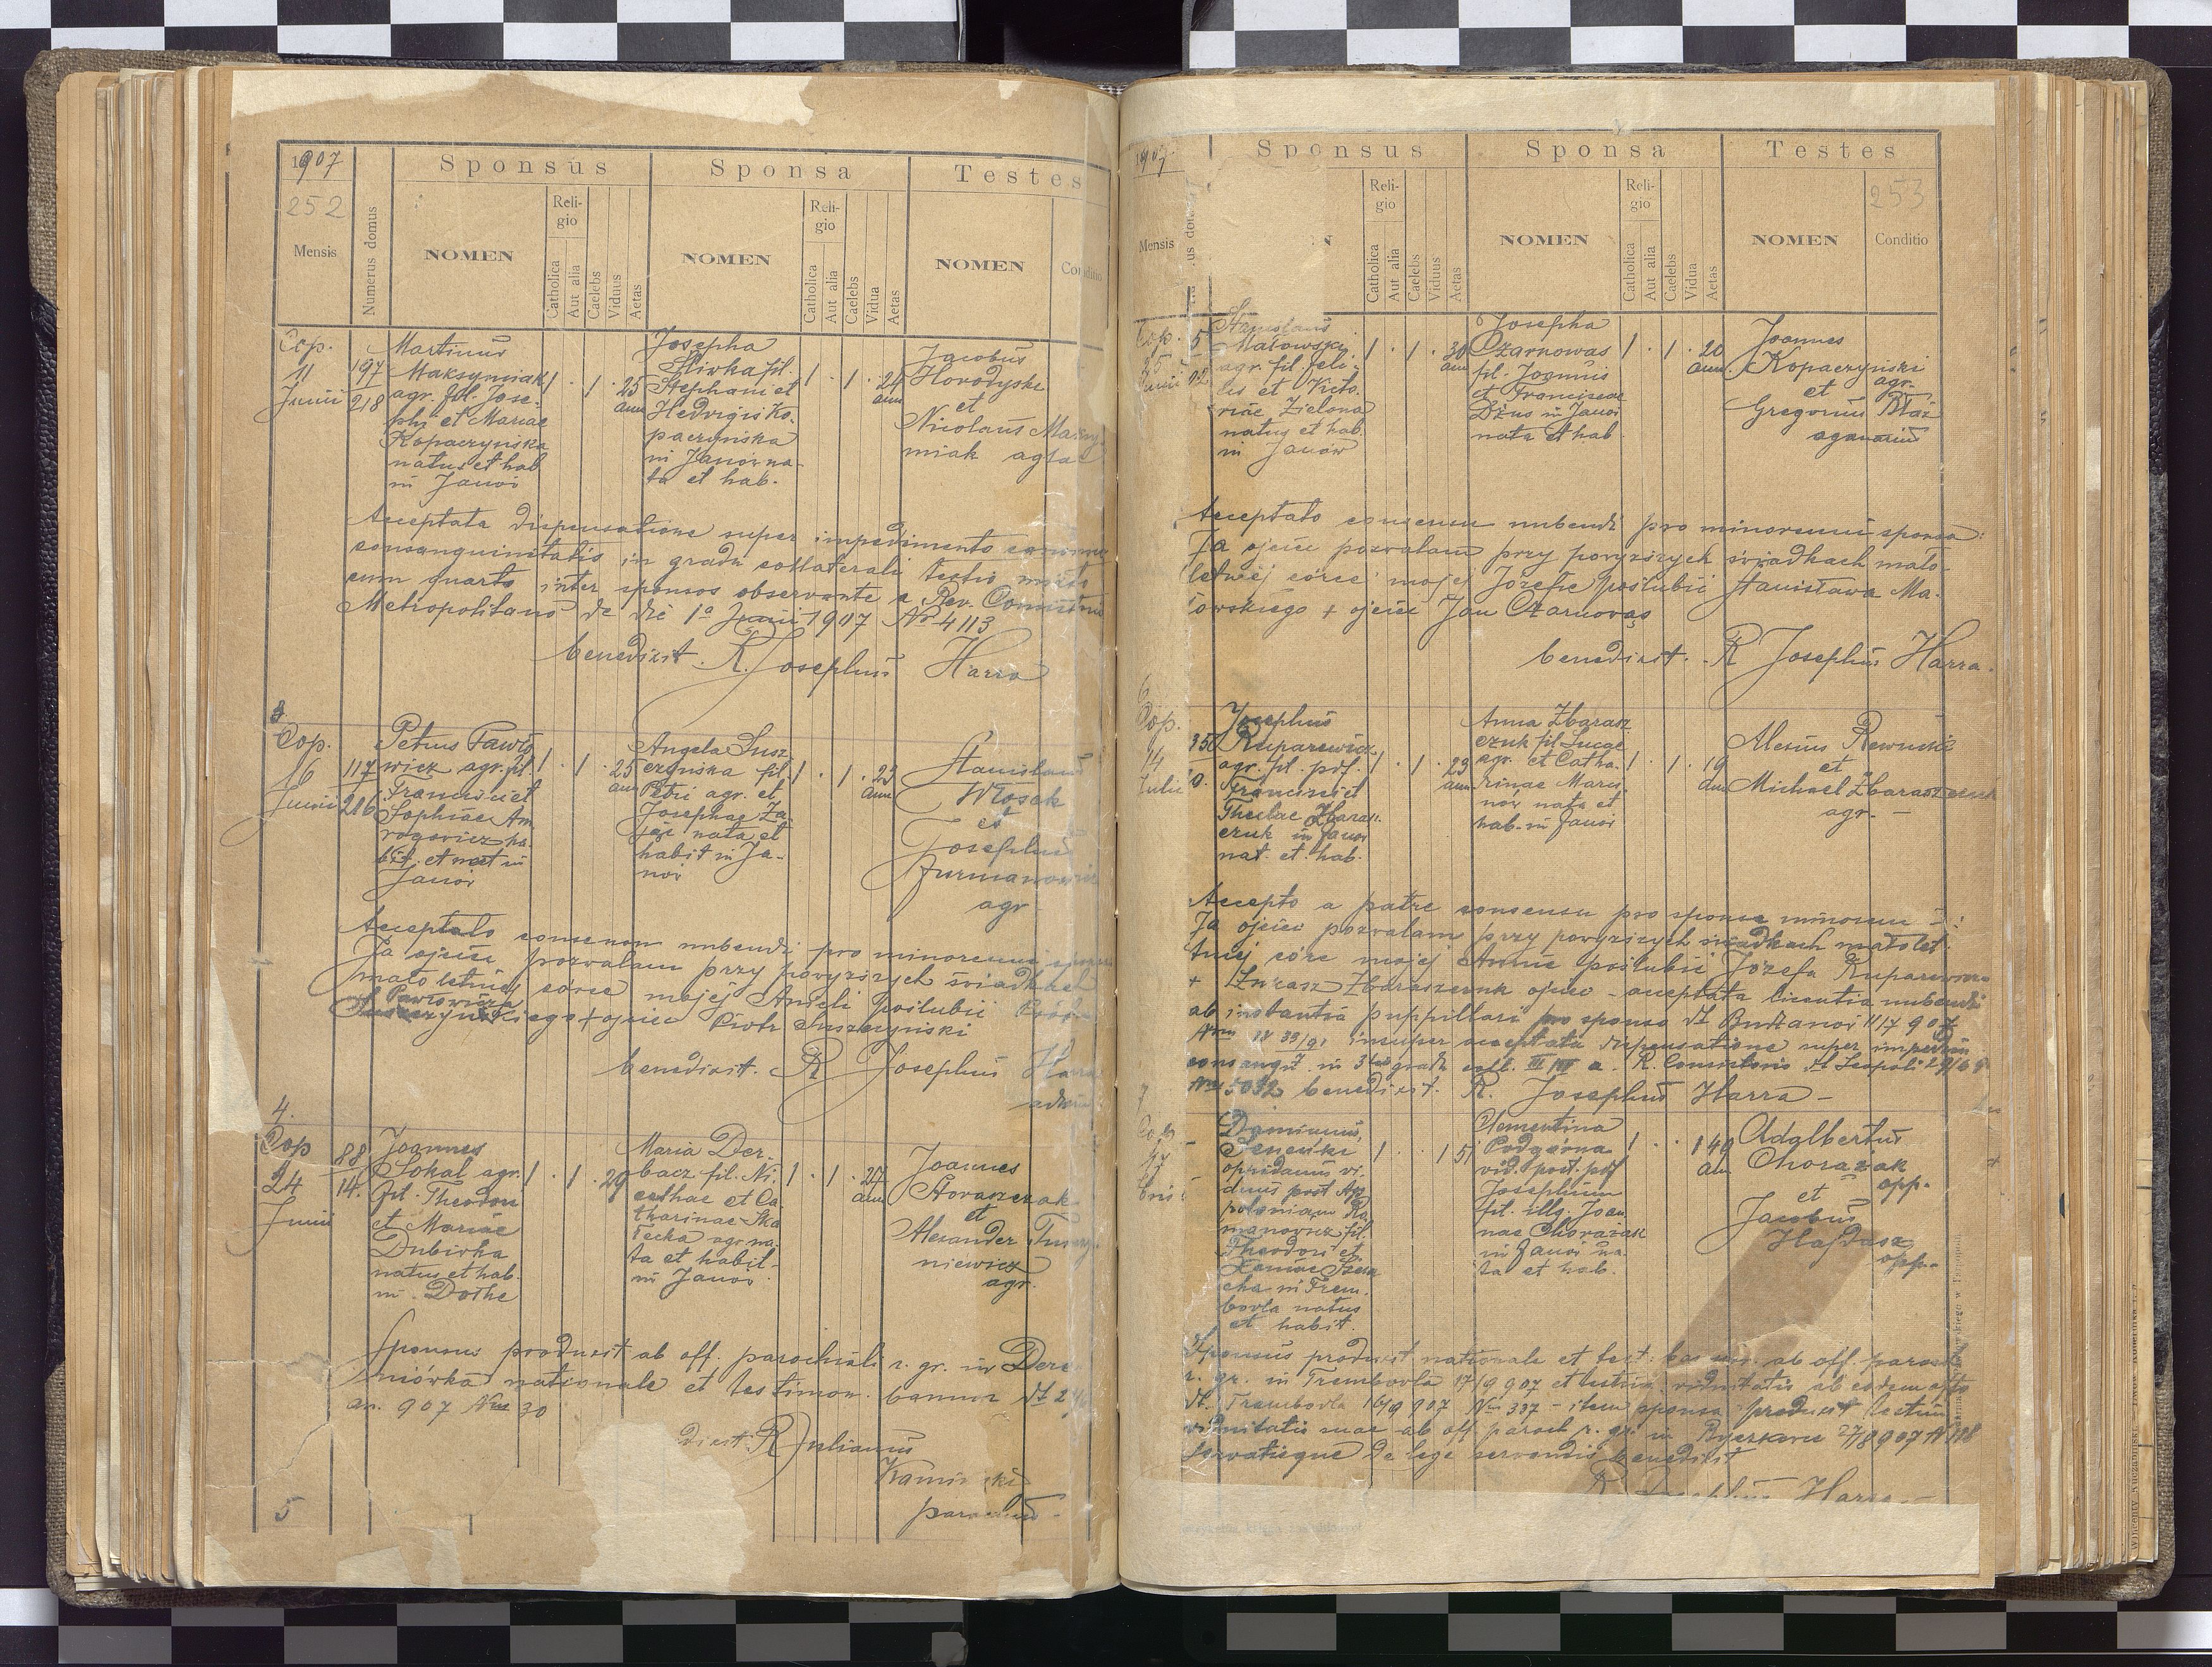 1907
252
Mensis
Numerus domus
Sponsus
NOMEN
Religio
Catholica
Aut alia
Caelebs
Viduus
Aetas
Sponsa
NOMEN
Religio
Catholica
Aut alia
Caelebs
Vidua
Aetas
Testes
NOMEN
Cop.
11
Junii
197
218
Martinus
Maksymiak
agr. fil. Jose-
phi et Mariae
Kopaczyńska
natus et hab
in Janów
1 . 1 . 25
ann
Josepha
Śliwka fil.
Stephani et
Hedvigis Ko-
paczyńska
in Janów na-
ta et hab.
1 . 1 . 24
ann
Jacobus
Horodyski
et
Nicolaus
miak
Acceptata dispensatione super impedimento
consanguinitatis in gradu collaterali tertio mixto
cum quarto inter sponsos observante a Rev.
Metropolitano de die 1º Junii 1907 Nº 4113
benedixit. R. Josephus Harra
3
Cop.
16
Junii
117
216
Petrus Pawło
wicz agr. fil.
Francisci et
Sophiae Am
rogowicz ha-
bit. et nat in
Janów
1 . 1 . 25
ann
Angela Susz
czyńska fil.
Petri agr. et
Josephae Za-
jąc nata et
habit in Ja-
nów
1 . 1 . 23
ann
Stanislaus
Włosek
et
Josephus
agr
Acceptato consensu nubendi pro minorenni
Ja ojciec pozwalam przy powyższych świadkach
małoletniej córce mojej Anieli poślubić
Pawłowicza
+ ojciec Piotr Suszczyński
benedixit. R Josephus Harra
4.
Cop
24
Junii
88
14.
Joannes
Sokal agr.
fil. Theodori
et Mariae
Dubicka
natus et hab.
in Dołhe
1 . 1 . 29
Maria Der-
kacz fil. Ni-
cethae et Ca-
tharinae Ska
łecka agr. na-
ta et habit-
in Janów
1 . 1 . 27
ann
Joannes
Storaszczak
et
Alexander
niewicz
agr.
Sponsus produxit ab off. parochiali r. gr. in
niówka nationale et testimon. bannor dt
an. 907 Nrus 30
dixit. R Julianus
Kamiński
parochus
5
1907.
Mensis
Sponsus
Religio
Catholica
Aut alia
Caelebs
Viduus
Aetas
Sponsa
NOMEN
Religio
Catholica
Aut alia
Caelebs
Vidua
Aetas
Testes
253
NOMEN
Conditio
Cop. 5
25
Junii
Stanislaus
Małowski
agr. fil. Feli-
cis et Victo-
riae Zielona
natus et hab.
in Janów
1 . 1 . 30
ann
Josepha
Czarnowąs
fil. Joannis
et Franciscae
Dżus in Janów
nata et hab
1 . 1 . 20
ann.
Joannes
Kopaczyński
agr.
et
Gregorius Błaż
Acceptato consensu nubendi pro minorenni sponsa:
Ja ojciec pozwalam przy powyższych świadkach mało-
letniej córce mojej Józefie poślubić Stanisława Ma-
łowskiego + ojciec Jan Czarnowąs
benedixit. R Josephus Harra.
6
Cop.
14
Julii
350
Josephus
Ruparewicz
agr. fil. pdf.
Francisci et
Theclae Zbarasz-
czuk in Janów
nat. et. hab.
1 . 1 . 23
ann
Anna Zbarasz
czuk fil. Lucae
agr. et Catha-
rinae Marci
nów nata et
hab. in Janów
1 . 1 . 19
ann
Alexius
et
Michael Zbaraszczuk
agr. -
Accepto a patre consensu pro sponsa minorenni
Ja ojciec pozwalam przy powyższych świadkach małolet-
tniej córce mojej Annie poślubić Józefa Ruparewicza
+ Łukasz Zbaraszczuk ojciec - acceptata licentia nubendi
ab instantia puppillari pro sponso dt Budzanów 11/7 907
insuper acceptata dispensatione super impedim
consangt. in 3tio gradu coll. III IV a. R. Consistorio dt Leopoli 29/6
Nrus 5032 benedixit. R. Josephus Harra -
7
Damianus
Seneńki
opidanus vi-
duus post Ap-
poloniam Ro
manowicz fil.
Theodori et
Xeniae
cha in Trem-
bowla natus
et habit.
1 . . 1 51
Clementina
Podgórna
vid. post. pdf
Josephum
fil. illg. Joan
nae Chorażak
in Janów na-
ta et hab.
1 . . 1 49
an
Adalbertus
Chorażak
opp.
et
Jacobus
Hajdasz
opp.
Sponsus produxit nationale et test. ban nor. ab off. paroch
r. gr. in Trembowla 17/9 907 et testim. viduitatis ab eodem offo
dt. Trembowla 16/9 907 Nrus 337 - item sponsa produxit testim
viduitatis suae ab off. paroch r. gr. in 27/8 907 N 128
servatisque de lege servandis benedixit
R Josephus Harra